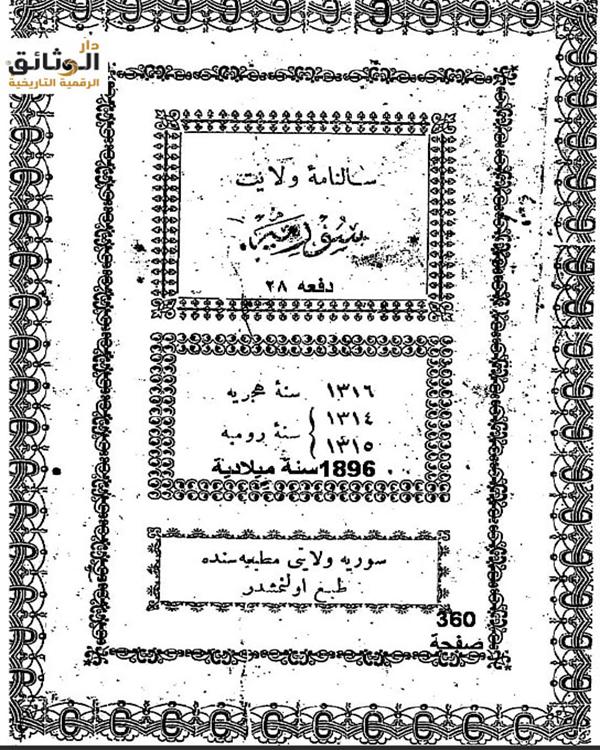 دار
الوثائق
الرقمية التاريخية
سالنامهٔ ولايت
سوريه
دفعه ٢٨
١٣١٦ سنهٔ هجريه
١٣١٤
١٣١٥ سنهٔ روميه
1896 سنة ميلادية
سوريه ولايتى مطبعه‌سنده
طبع اولنمشدر
360
صفحة